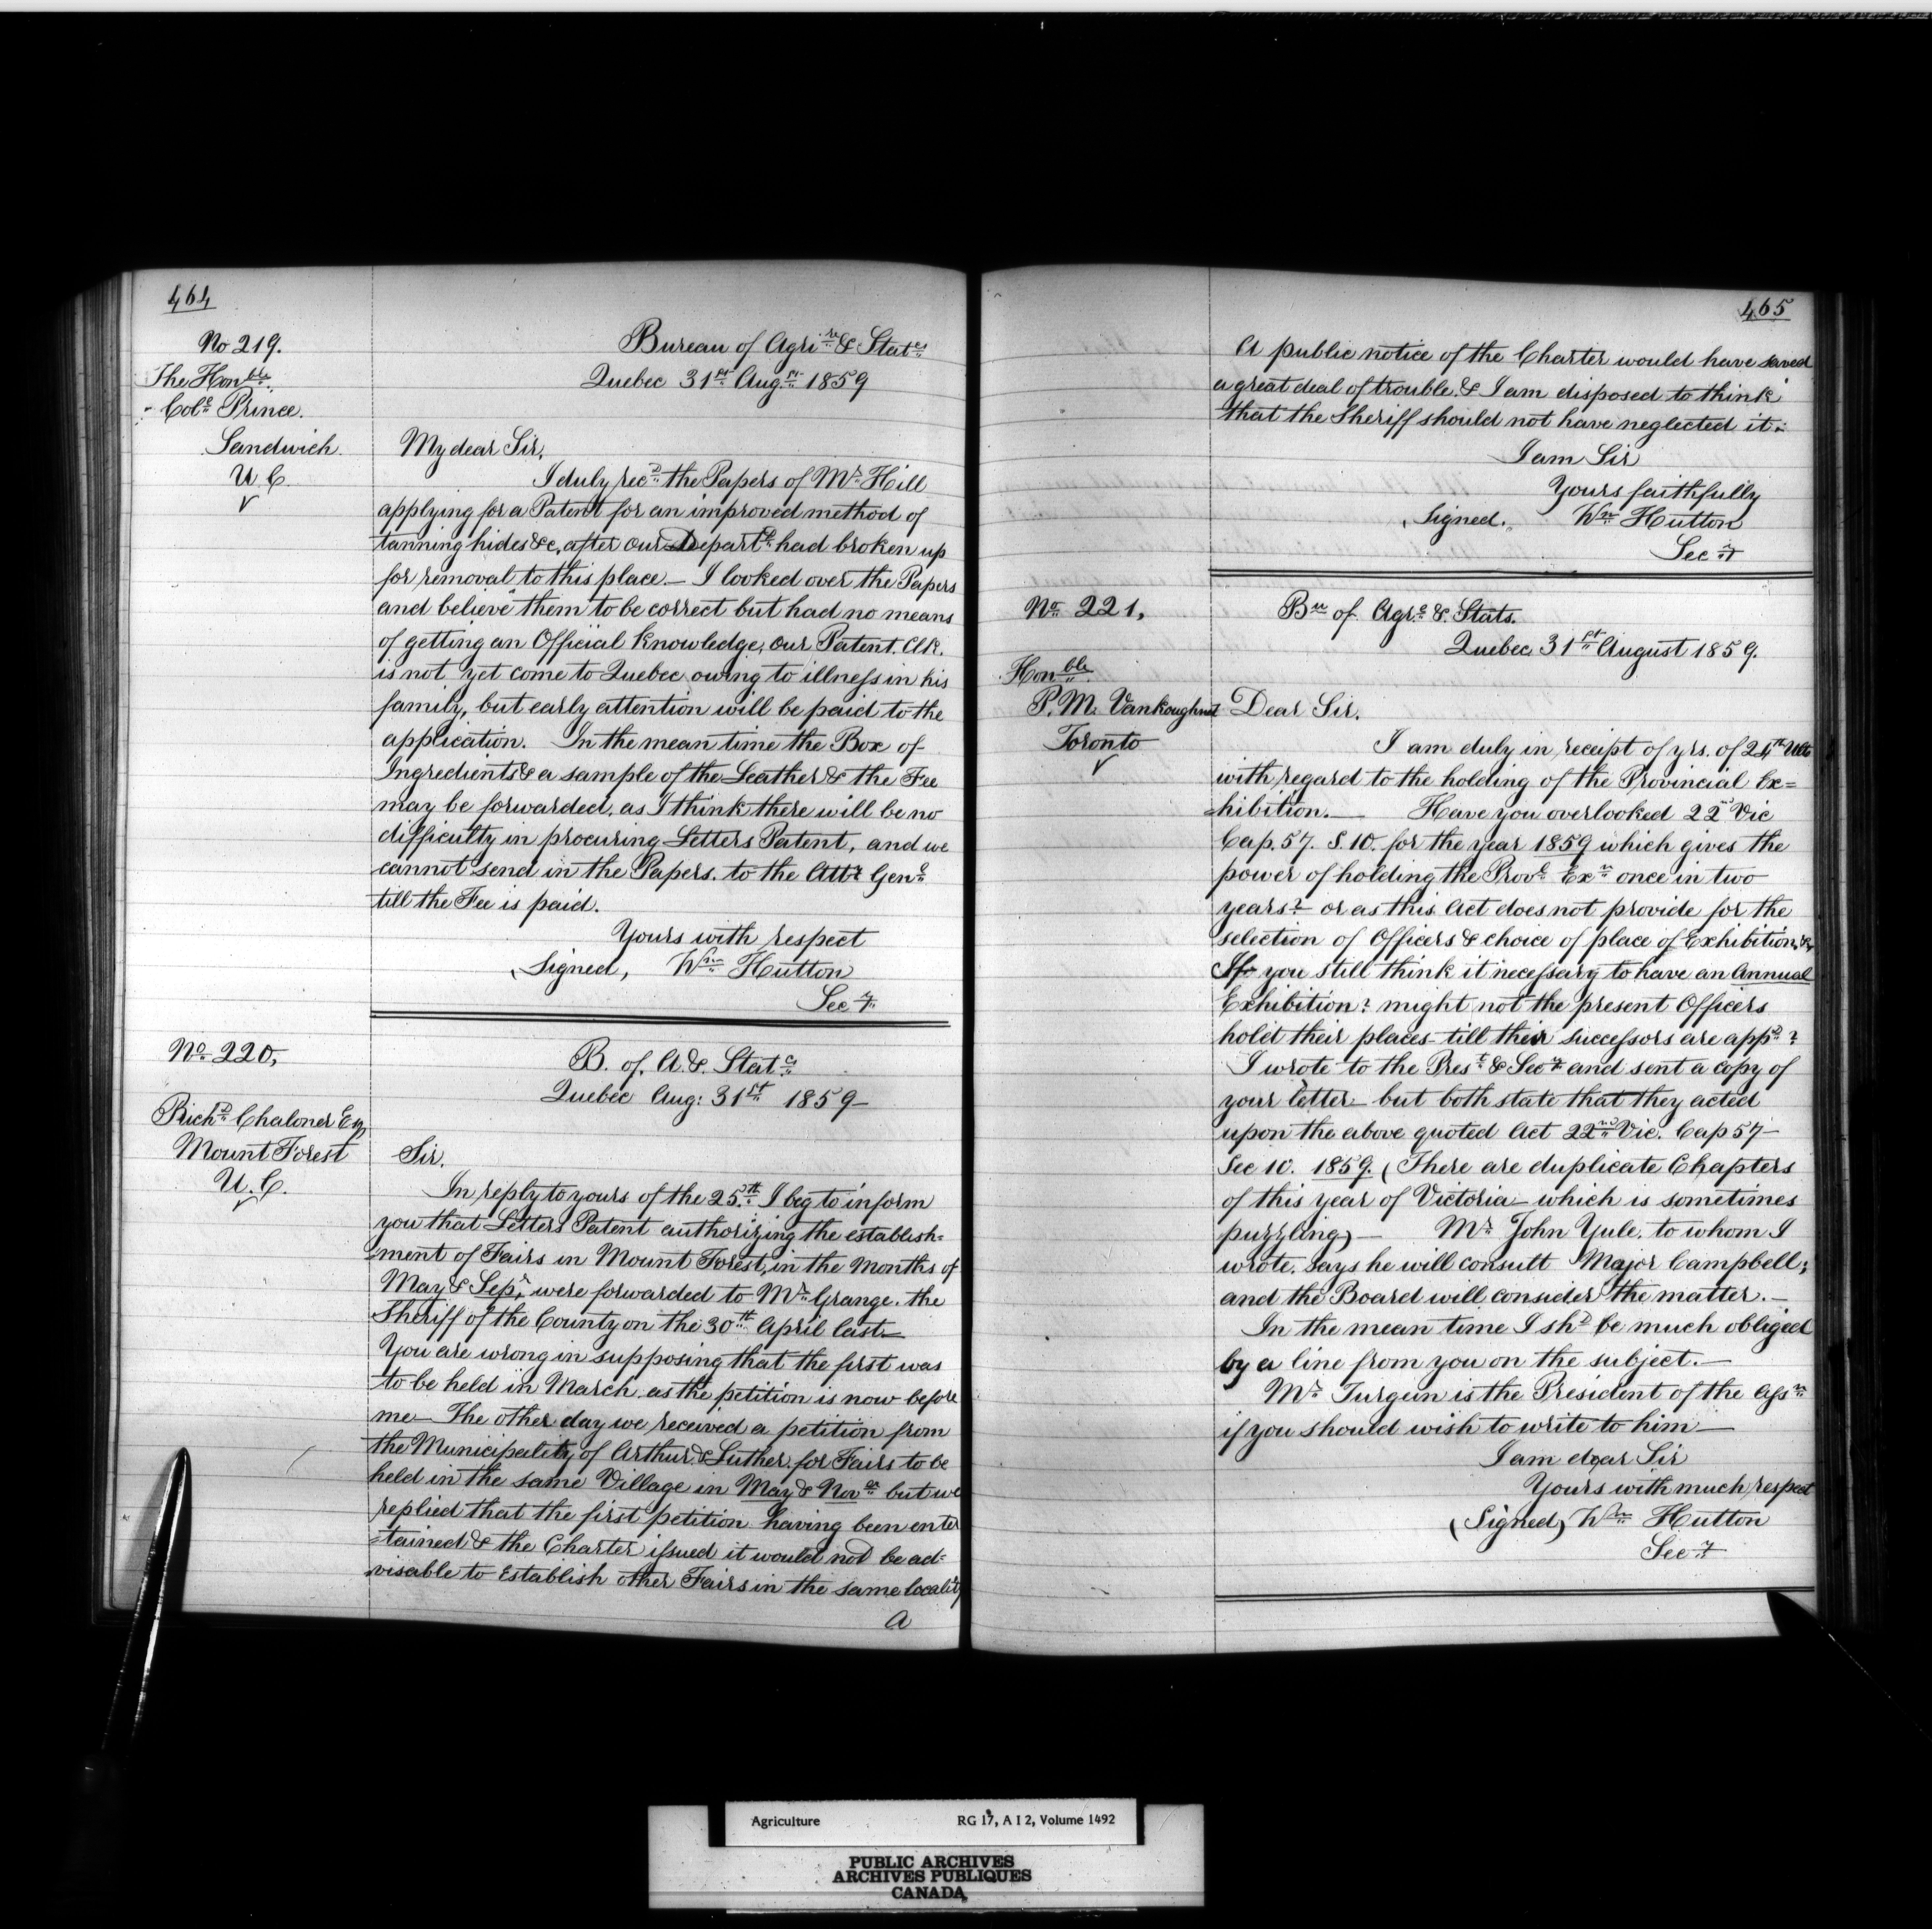 464
No 219.
The Honble.
Cole Prince.
Sandwich
U C
Bureau of Agrire & Stats
Quebec 31st Augst 1859
My dear Sir,
I duly recd the Papers of Mr Hill
applying for a Patent for an improved method of
tanning hides &c, after our Departt had broken up
for removal to this place. — I looked over the Papers
and believe them to be correct but had no means
of getting an Official knowledge, our Patent. Clk.
is not yet come to Quebec owing to illness in his
family, but early attention will be paid to the
application. In the mean time the Box of
Ingredients & a sample of the Leather & the Fee
may be forwarded, as I think there will be no
difficulty in procuring Letters Patent, and we
cannot send in the Papers. to the Attr Genl
till the Fee is paid.
Yours with respect
Signed, Wm Hutton
Secy.
No 220,
Richd Chaloner Esq
Mount Forest
U. C.
B. of. A &. Stats
Quebec Aug: 31st 1859—
Sir.
In reply to yours of the 25th I beg to inform
you that Letters Patent authorizing the establish=
ment of Fairs in Mount Forest, in the Months of
May & Sepr, were forwarded to Mr Grange. the
Sheriff of the County on the 30th April last—
You are wrong in supposing that the first was
to be held in March as the petition is now before
me — The other day we received a petition from
the Municipality of Arthur & Luther for Fairs to be
held in the same Village in May & Novbr but we
replied that the first petition having been enter
=tained & the Charter issued it would not be ad=
visable to Establish other Fairs in the same locality
A
465
A public notice of the Charter would have saved
a great deal of trouble. & I am disposed to think
that the Sheriff should not have neglected it.
I am Sir
Yours faithfully
Signed. Wm Hutton
Secy
No 221,
Honble
P. M. Vankoughnet
Toronto
Bu of Agre & Stats.
Quebec 31st August 1859.
Dear Sir.
I am duly in receipt of yrs. of 24th Ulto
with regard to the holding of the Provincial Ex=
hibition. — Have you overlooked 22nd Vic
Cap. 57. S. 10. for the year 1859 which gives the
power of holding the Provl Exn once in two
years? or as this Act does not provide for the
selection of Officers & choice of place of Exhibition, &c,
If you still think it necessary to have an Annual
Exhibition? might not the present Officers
hold their places till their successors are appd?
I wrote to the Prest & Secy and sent a copy of
your letter — but both state that they acted
upon the above quoted Act 22nd Vic. Cap 57—
Sec 10. 1859. (There are duplicate Chapters
of this year of Victoria — which is sometimes
puzzling) — Mr John Yule, to whom I
wrote. says he will consult Major Campbell;
and the Board will consider the matter. —
In the mean time I shd be much obliged
by a line from you on the subject. —
Mr Turgun is the President of the Assn
if you should wish to write to him —
I am dear Sir
Yours with much respect
(Signed) Wm Hutton
Secy
Agriculture RG 17, A I 2, Volume 1492
PUBLIC ARCHIVES
ARCHIVES PUBLIQUES
CANADA